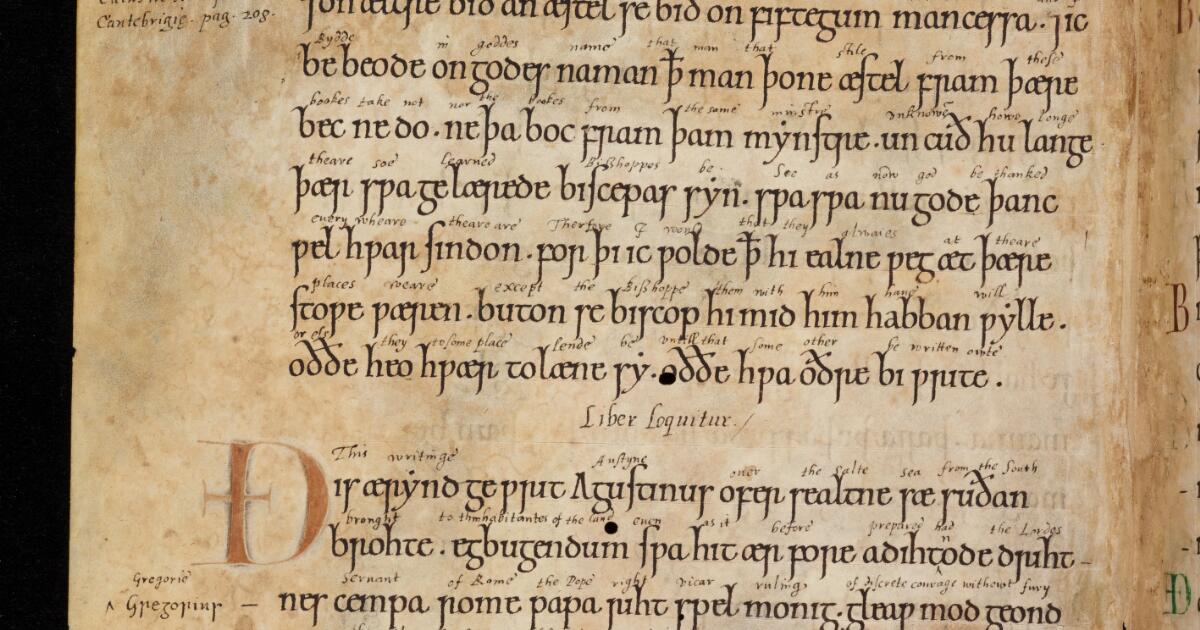 Cantebrigię. pag. 208.
on ælcre bið an æstel se bið on fiftegum mancessa. ⁊ ic
Bydde in goddes name that man that stile from these
be beode on godes naman þ̄ man þone æstel fram þære
bookes take not nor the bookes from the same minstre unknowē howe longe
bec ne do. ne þa boc fram þam mynstre. un cuð hu lange
theare soe learned Bishoppes be. Soe as now god be thanked
þær swa ge lærede bisceopas syn. swa swa nu gode þanc
every wheare theare are Therfore I would that they alwaies at theare
wel hwær sindon. for þi ic wolde þ̄ hi ealne weg æt þære
places weare except the Bishoppe them with him have will
stowe wæren. buton se biscop hi mid him habban wylle.
or els they to some place lende be untill that some other be written owte
oððe heo hwær to læne sy. oððe hwa oðre bi write.
Liber loquitur./
This writinge Austyne over the salte sea from the South
Ðis ærynd ge writ Agustinus ofer sealtne sæ suðan
brought to thinhabitantes of the land even as it before prepared had the Lordes
brohte. egbugendum swa hit ær fore adihtode driht-
Gregorie servant of Rome the Pope right vicar ruling of discrete courage without fury
^ Gregorius — nes cempa rome papa riht spel monig. gleaw mod geond